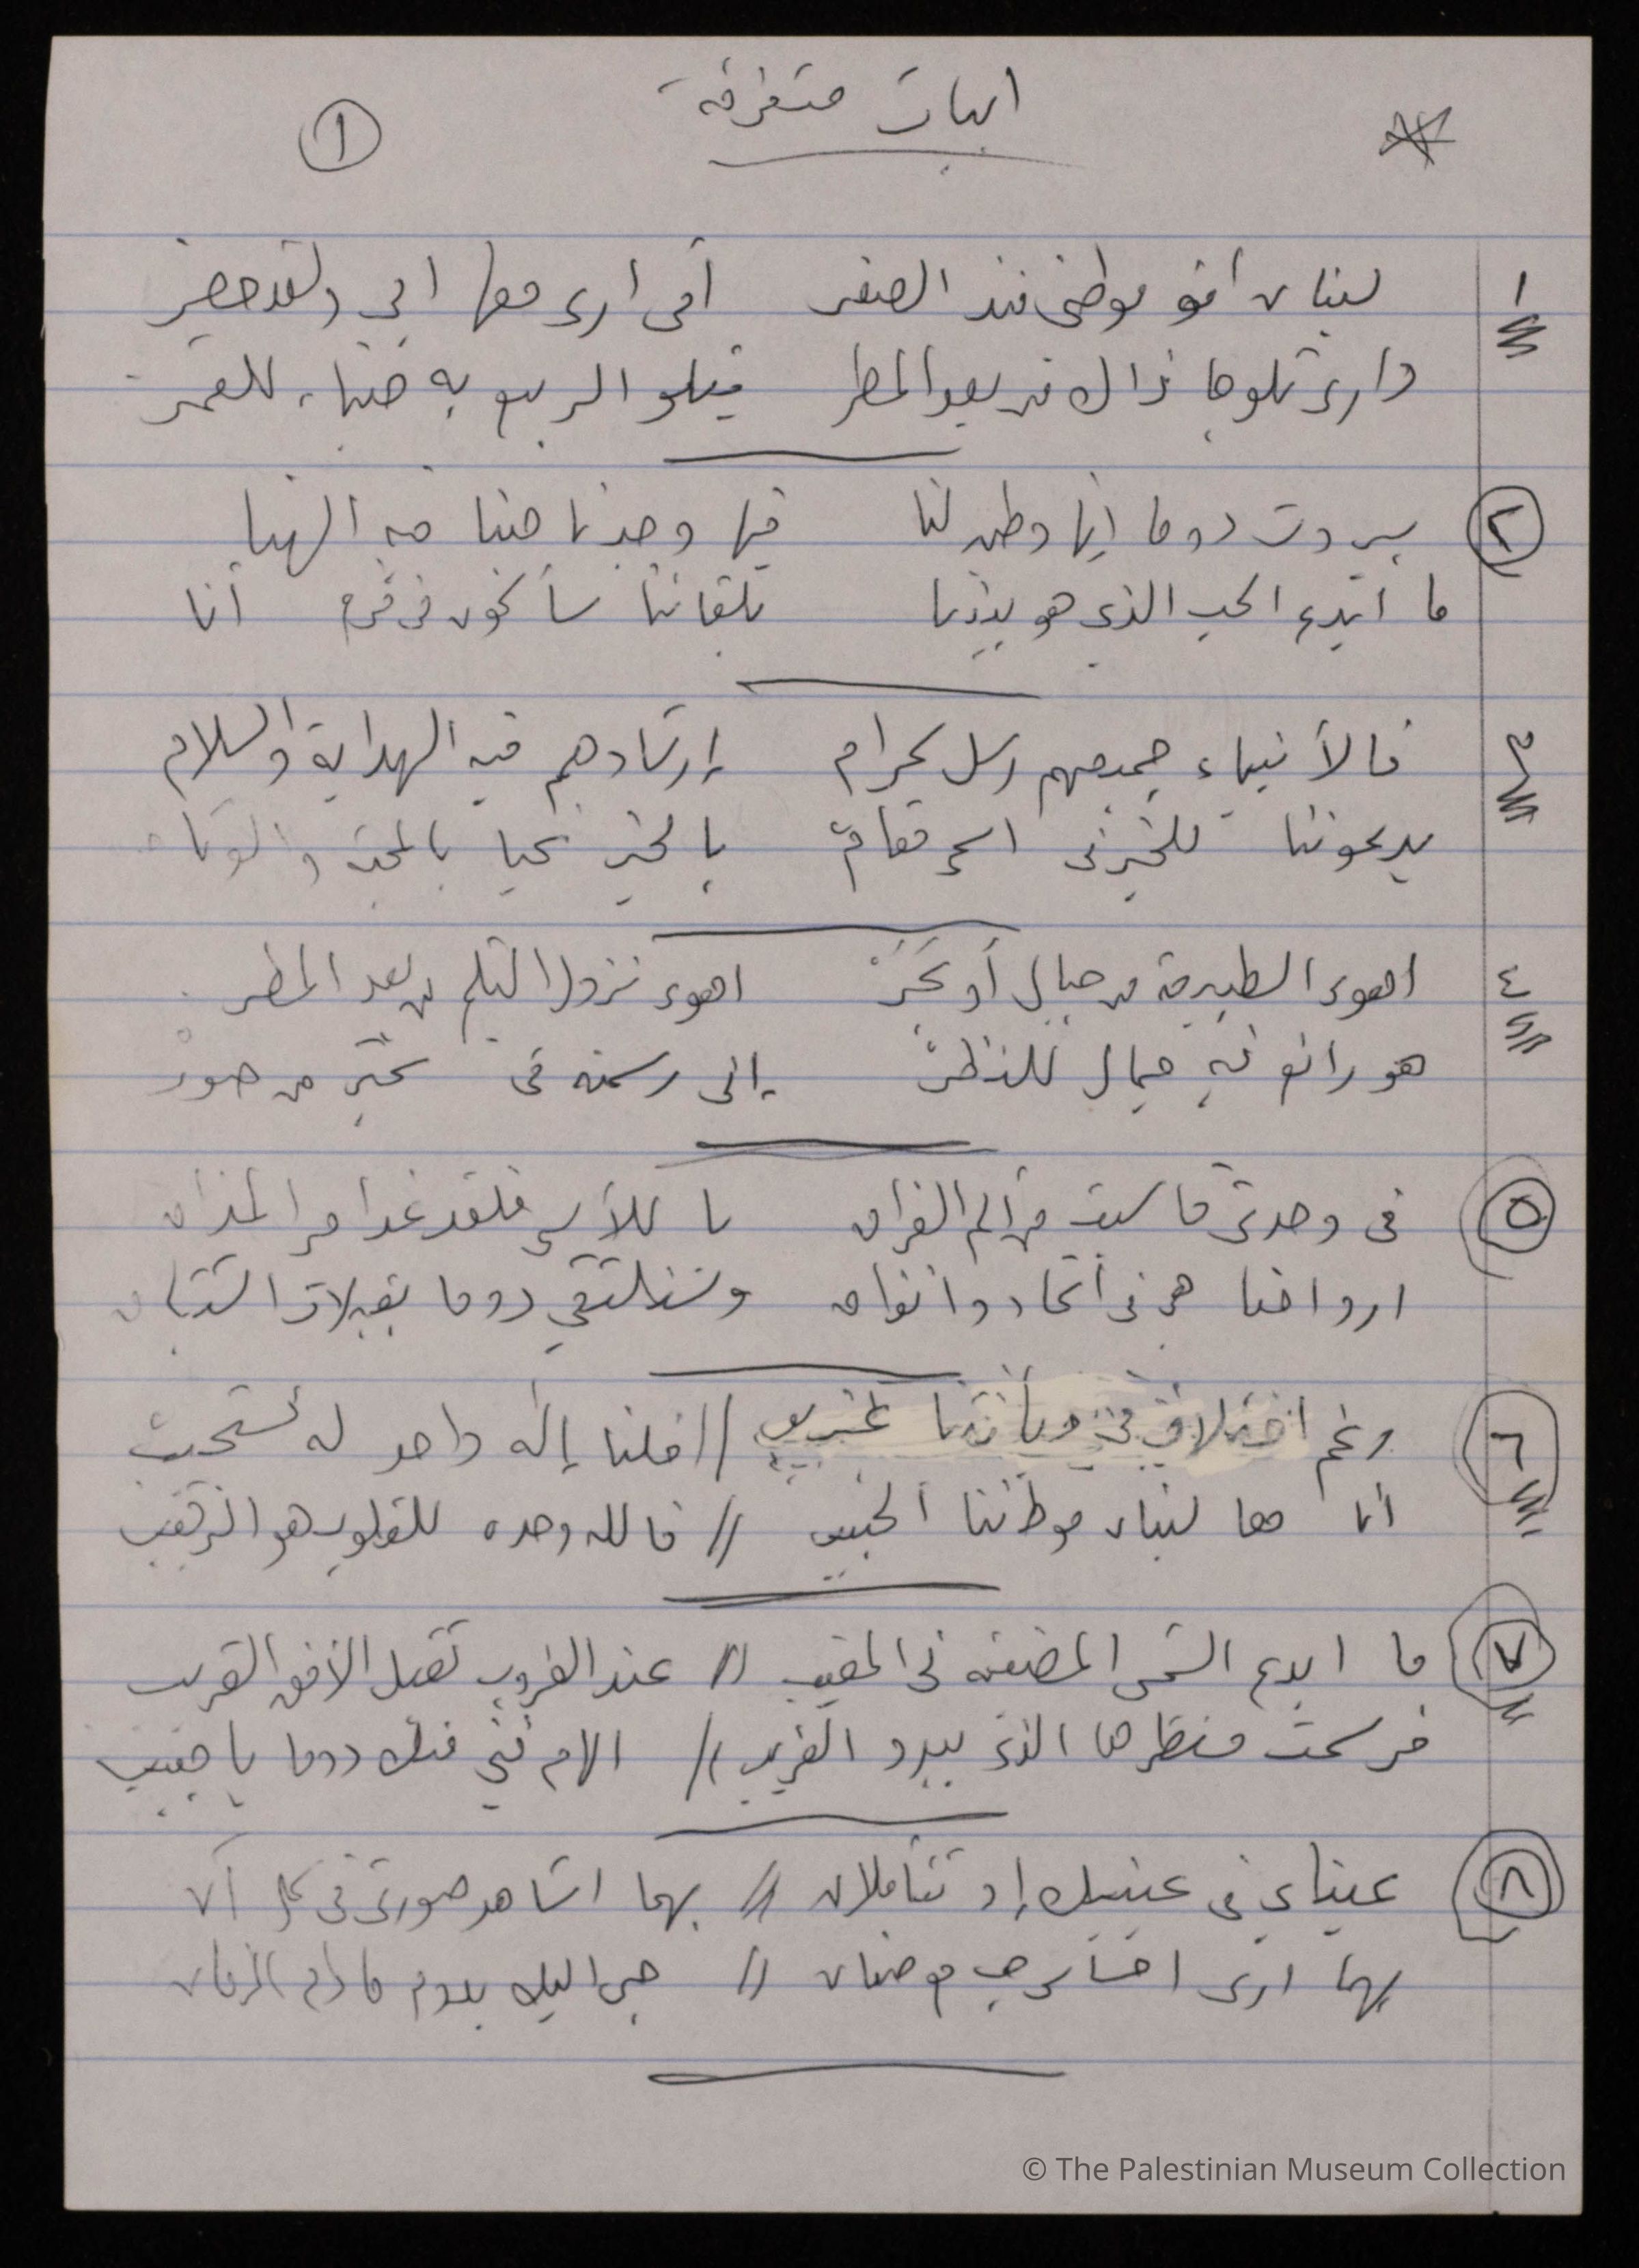 ابيات متفرقة
١
١ لبنان أنو موطني منذ الصغر أمي ارى معها ابي ولقد حضر
داري ثلوجا ذاك من بعد المطر يتلو الربيع به ضياء للقمر
٢ بيروت دوما انها وطن لنا فيها وجدنا حبنا فيه الهنا
ما ابدع الحب الذي هو بيننا بلقائنا سأكون في فرح أنا
٣ فالأنبياء جميعهم رسل كرام إرشادهم فيه الهداية والسلام
يدعوننا للخير في اسمى مقام بالخير نحيا بالمحبة والوئام
٤ اهوى الطبيعة من جبال أو بَحَرْ اهوى نزول الثلج من بعد المطر
هو رائع فيه جمال للنظرْ إني رسمته في كثير من صورْ
٥ في وحدتي قاسيت من ألم الفراق يا للأسى فلقد غدا مر المذاق
ارواحنا هي في أتحاد واتفاق وسنلتقي دوما بقبلات اشتياق
٦ رغم اختلاف في ديانتنا غريب // فلنا إله واحد له نستجيب
انا معا لبنان موطننا الحبيب // فالله وحده للقلوب هو الرقيب
٧ ما ابدع الشمس المضيئه في المغيب // عند الغروب تقبل الأفق القريب
فرسمت منظرها الذي يبدو الغريب // الهام فني منك دوما يا حبيب
٨ عيناي في عينيك إذ تتأملان // بهما اشاهد صورتي في كل آن
بهما ارى احساس حب موضعان // حبي اليك يدوم ما دام الزمان
© The Palestinian Museum Collection